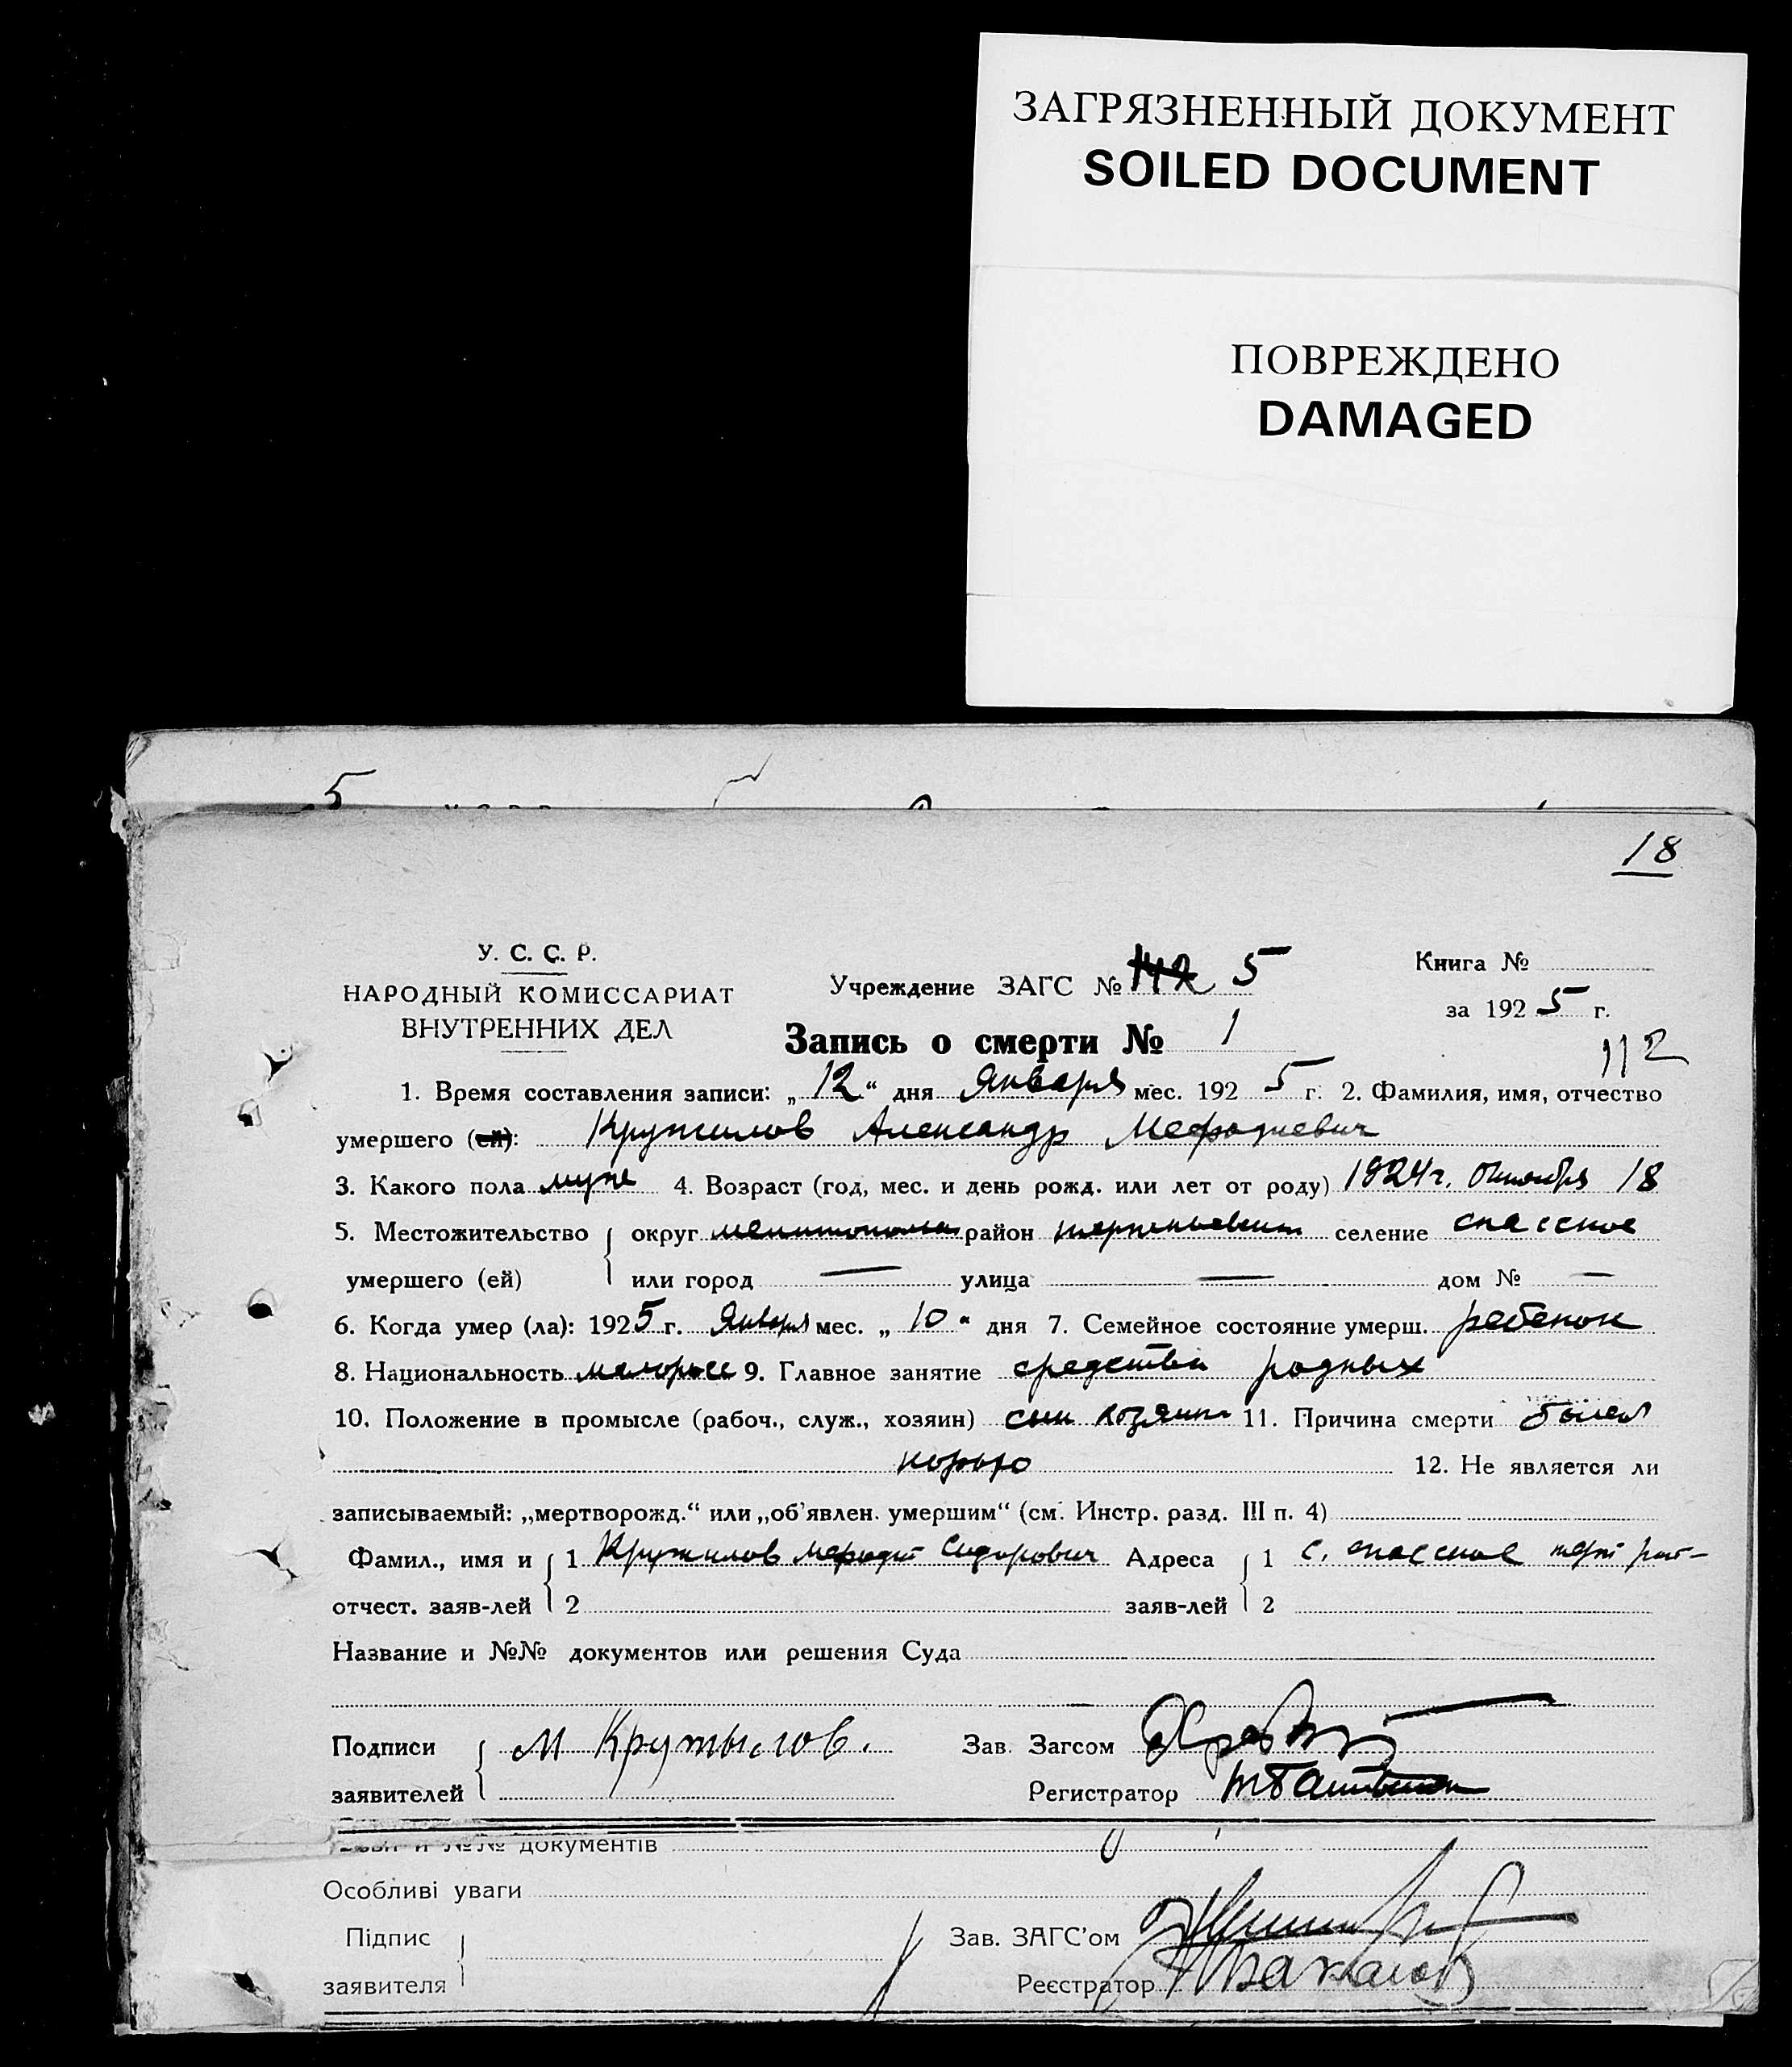 ЗАГРЯЗНЕННЫЙ ДОКУМЕНТ
SOILED DOCUMENT
ПОВРЕЖДЕНО
DAMAGED
5
18
У. С. С. Р.
НАРОДНЫЙ КОМИССАРИАТ
ВНУТРЕННИХ ДЕЛ
Учреждение ЗАГС № 142 5
Книга №
за 1925 г.
Запись о смерти № 1
112
1. Время составления записи: „12“ дня Января мес. 1925 г. 2. Фамилия, имя, отчество
умершего (ей): Кружилов Александр Мефодиевич
3. Какого пола муж 4. Возраст (год, мес. и день рожд. или лет от роду) 1924 г. Октября 18
5. Местожительство округ район селение спасское
умершего (ей) или город — улица — дом № —
6. Когда умер (ла): 1925 г. Января мес. „10“ дня 7. Семейное состояние умерш. ребенок
8. Национальность малоросс 9. Главное занятие средства родных
10. Положение в промысле (рабоч., служ., хозяин) сын хозяина 11. Причина смерти болел
корью 12. Не является ли
записываемый: „мертворожд.“ или „об'явлен. умершим“ (см. Инстр. разд. III п. 4)
Фамил., имя и 1 Кружилов Мефодий Сидорович Адреса 1 с. спасское
отчест. заяв-лей 2 заяв-лей 2
Название и №№ документов или решения Суда
Подписи М Зав. Загсом
заявителей Регистратор
и №№ документів
Особливі уваги
Підпис Зав. ЗАГС'ом
заявителя Реєстратор